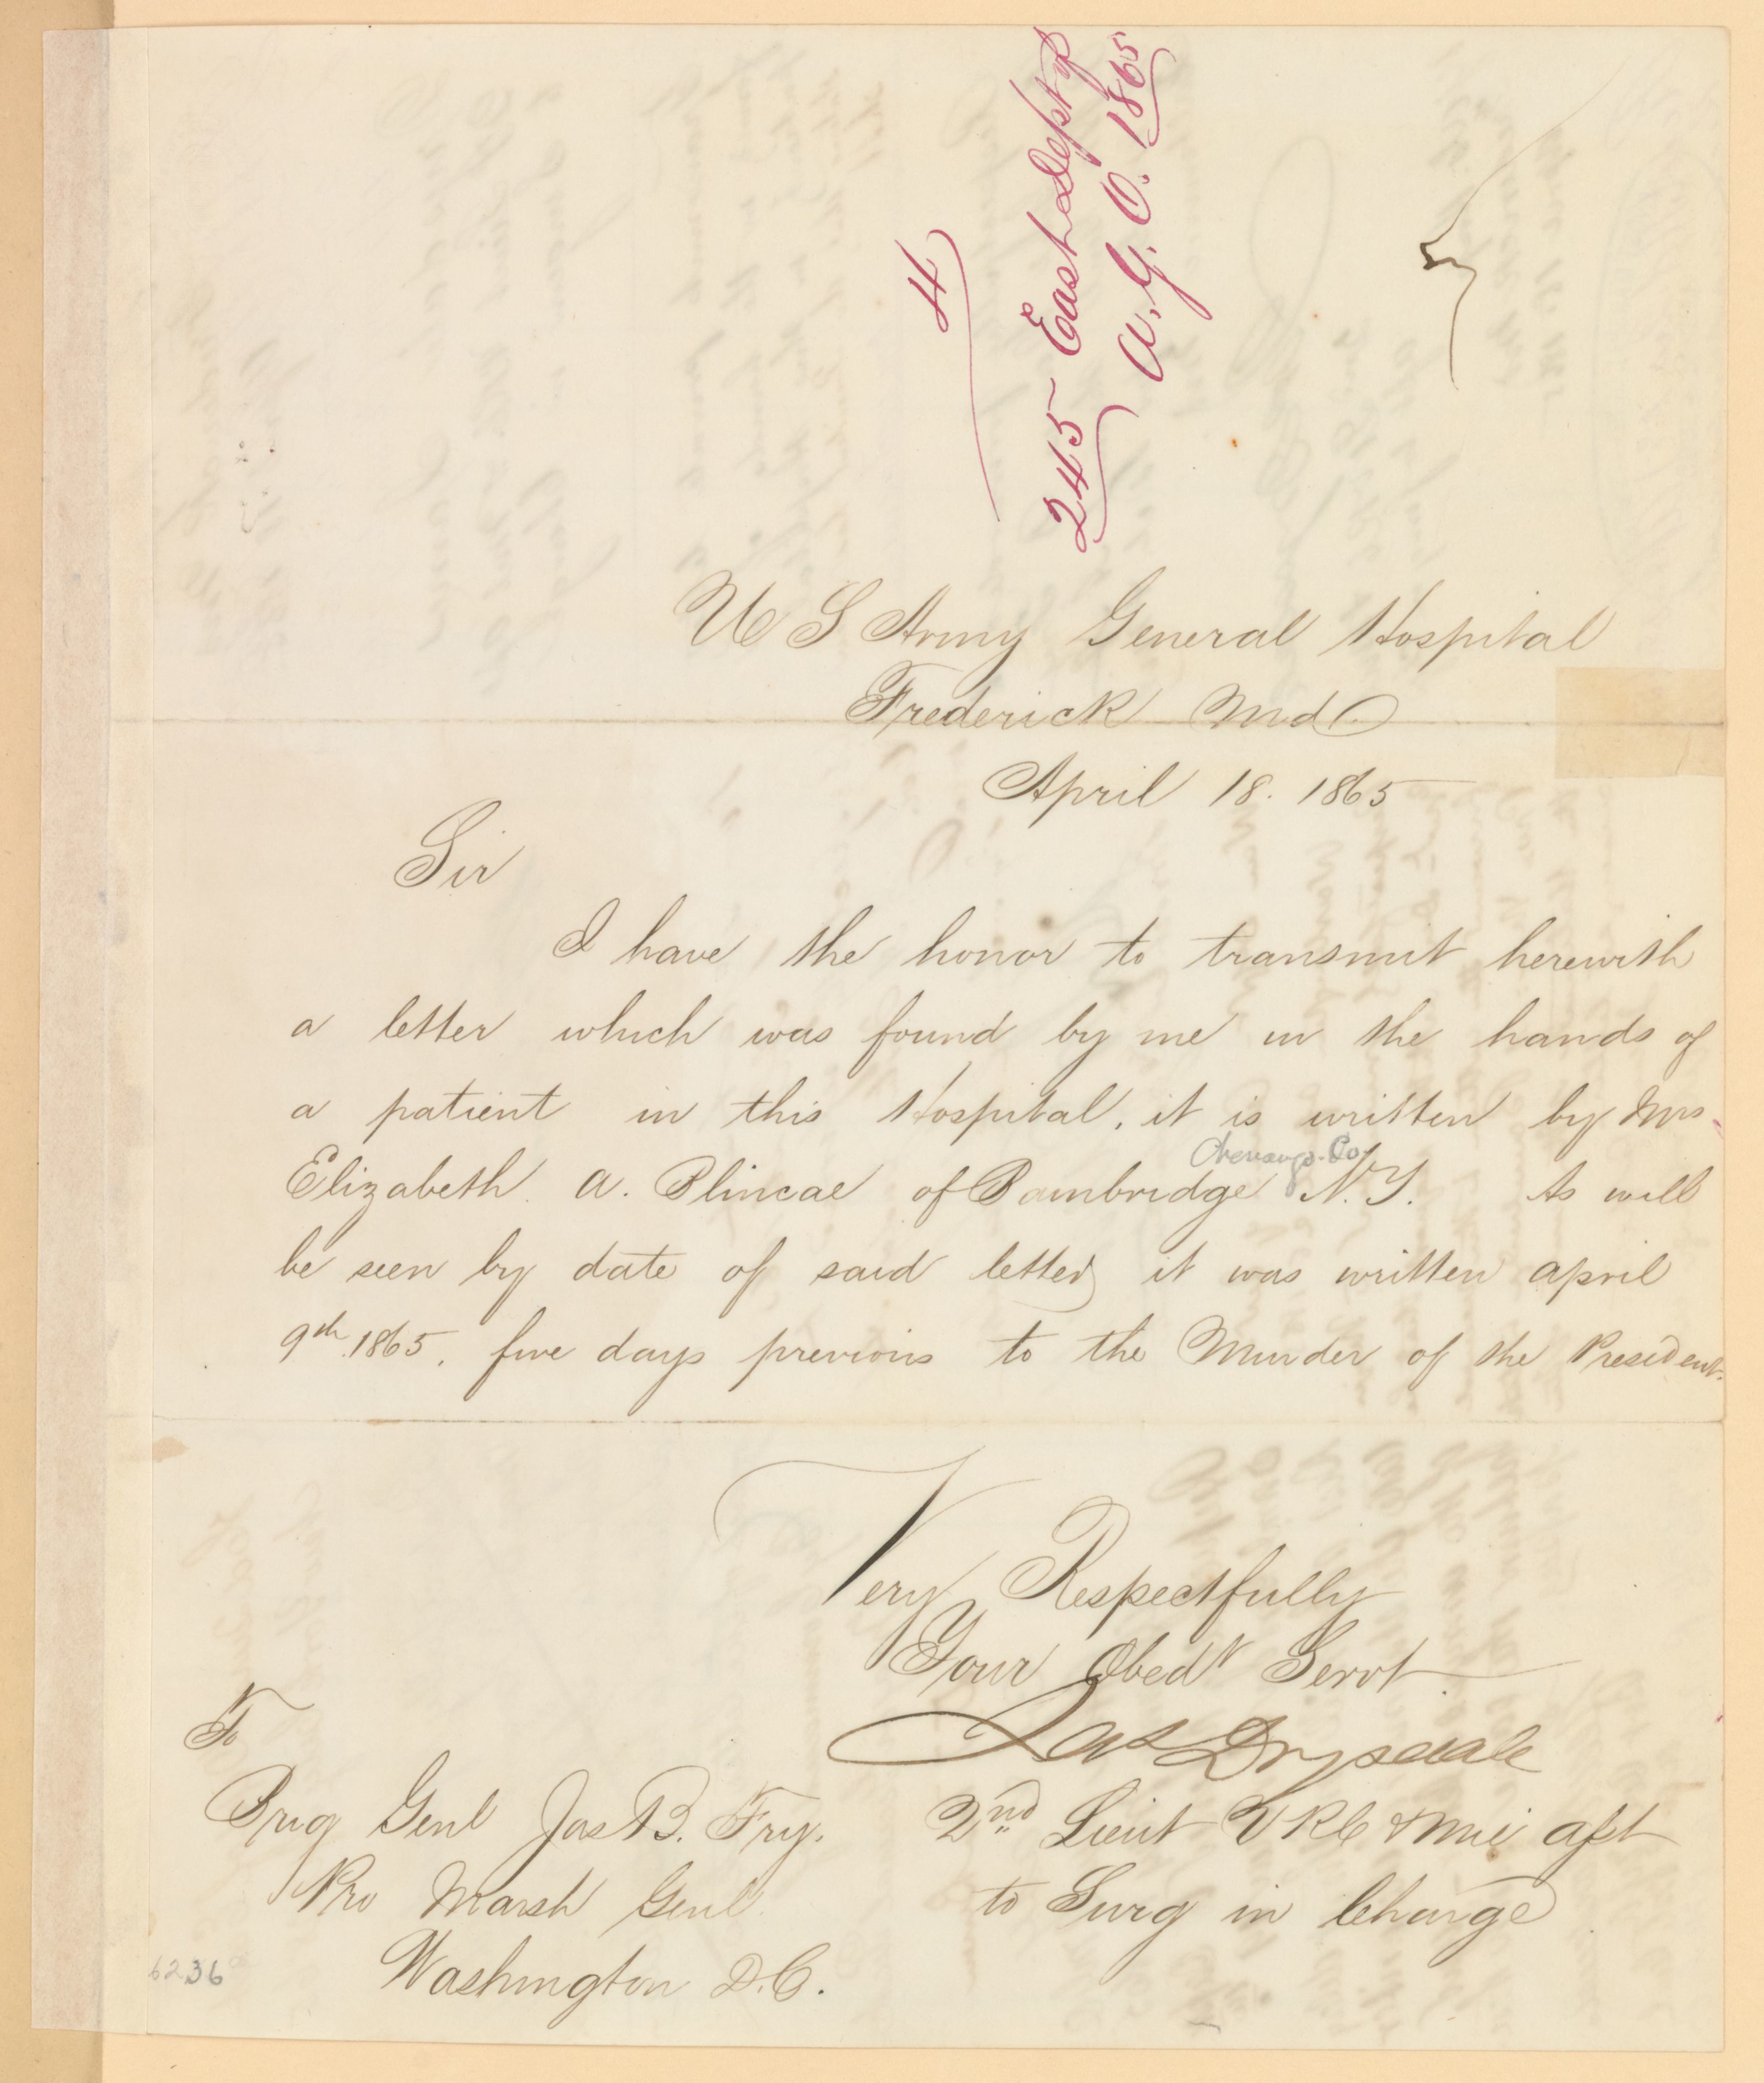 4
245 East Dept
A.G.O. 1865
U S Army General Hospital
Frederick Md
April 18. 1865
Sir
I have the honor to transmit herewith
a letter which was found by me in the hands of
a patient in this Hospital, it is written by Mrs
Chenango Co
Elizabeth A. Plincae of Bainbridge N.Y. As will
be seen by date of said letter it was written april
9th 1865, five days previous to the Murder of the President.
Very Respectfully
Your Obedt Servt
Jas Drysdale
2nd Lieut V R C & asst
to Surg in Charge
To
Brig Genl Jas B. Fry.
Pro Marsh Genl.
Washington D.C.
6236